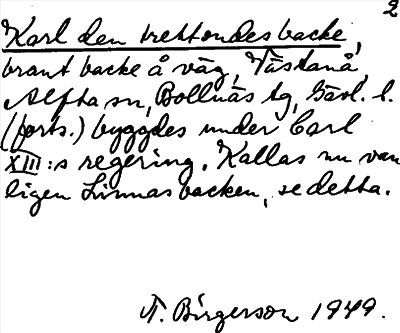 2
Karl den trettondes backe,
brant backe å väg, Västanå,
Alfta sn, Bollnäs tg, Gävl. l.
(forts.) byggdes under Carl
XIII:s regering. Kallas nu van
ligen Linnasbacken, se detta.
N. Birgerson 1949.